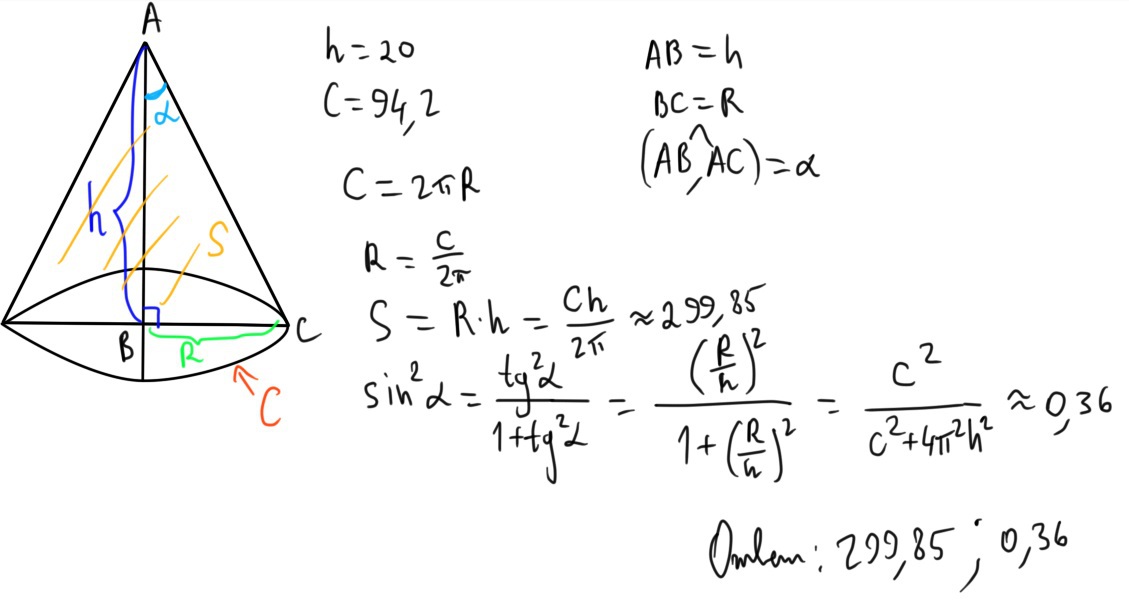 A
α
h
S
B
R
C
C
h = 20
C = 94,2
C = 2πR
R = C/2π
AB = h
BC = R
(AB,^AC) = α
S = R·h = Ch/2π ≈ 299,85
sin²α = tg²α/(1+tg²α) = (R/h)²/(1+(R/h)²) = C²/(C²+4π²h²) ≈ 0,36
Ответ: 299,85 ; 0,36